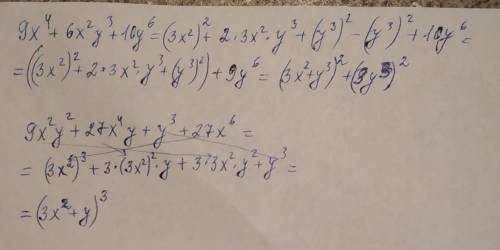 9x⁴ + 6x²y³ + 10y⁶ = (3x²)² + 2·3x²·y³ + (y³)² − (y³)² + 10y⁶ =
= ((3x²)² + 2·3x²·y³ + (y³)²) + 9y⁶ = (3x² + y³)² + (3y³)²
9x²y² + 27x⁴y + y³ + 27x⁶ =
= (3x²)³ + 3·(3x²)²·y + 3·3x²·y² + y³ =
= (3x² + y)³